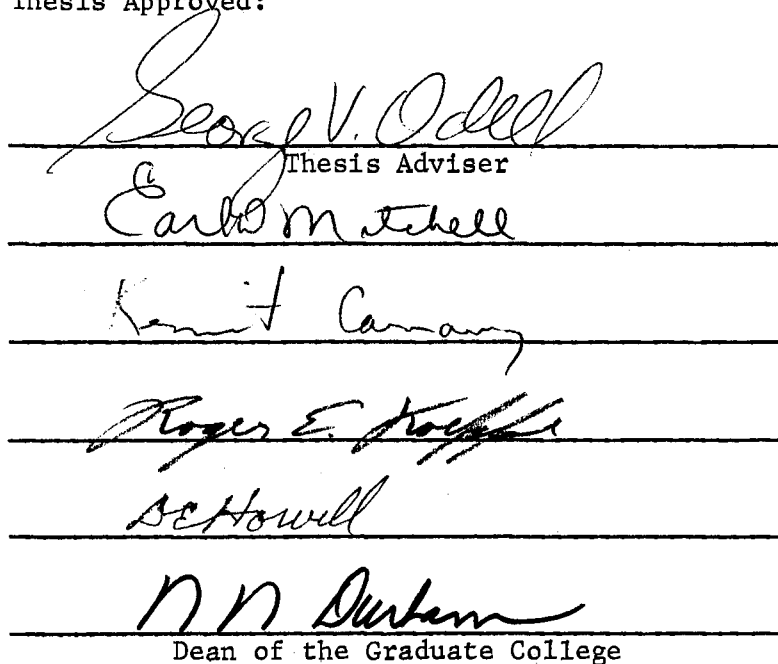 Thesis Approved:
George V. Odell
Thesis Adviser
Earl D Mitchell
Kermit Carraway
Roger E. Koeppe
D E Howell
N N Durham
Dean of the Graduate College